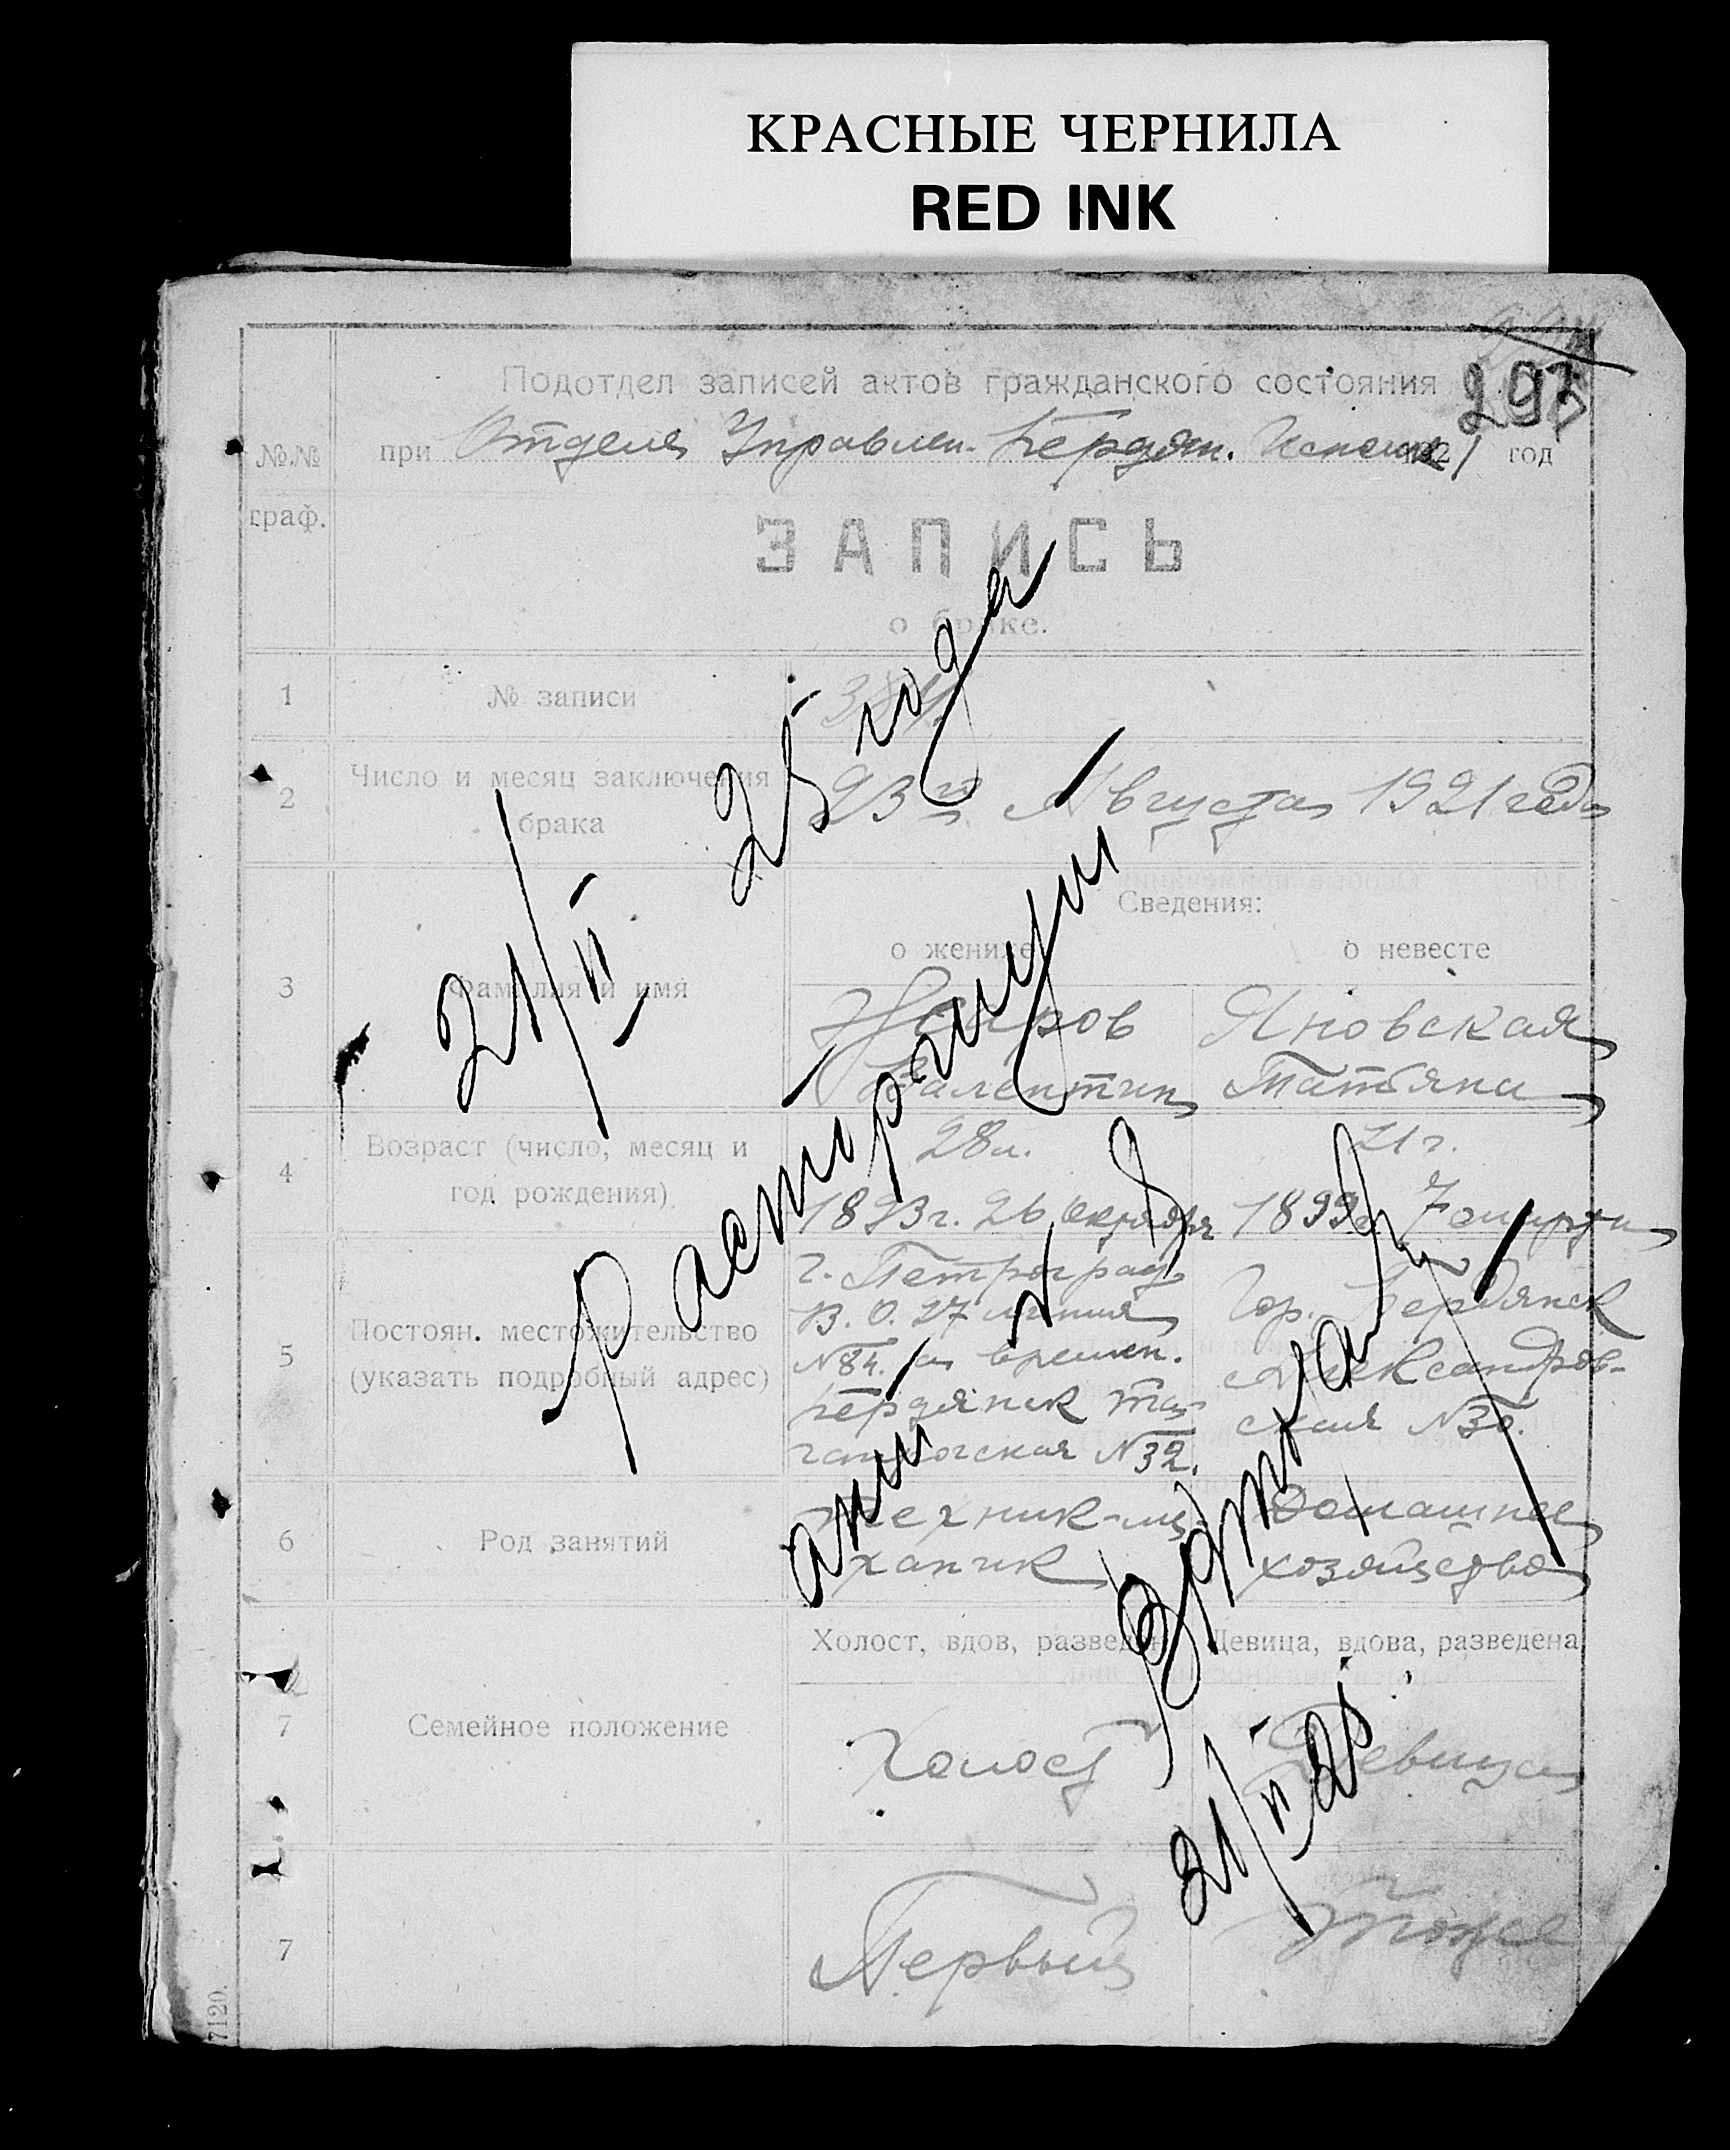 КРАСНЫЕ ЧЕРНИЛА
RED INK
297
Подотдел записей актов гражданского состояния
№№ граф.
при Отделе Управлен. Бердян. Исполк 1921 год
ЗАПИСЬ
о браке.
1 № записи 384
2 Число и месяц заключения брака
23го Августа 1921 года
Сведения:
о женихе о невесте
3 Фамилия и имя
Яновская
Валентин Татьяна
4 Возраст (число, месяц и год рождения)
28 л. 21 г.
1893 г. 26 октября 1899 г. 7
5 Постоян. местожительство (указать подробный адрес)
г. Петроград
В. О. 27 линия
№ 84. а времен.
Бердянск Та-
ганрогская № 32.
Гор. Бердянск
Александров-
ская № 30.
6 Род занятий
Техник-ме-
ханик
Домашнее
хозяйство
Холост, вдов, разведен Девица, вдова, разведена
7 Семейное положение
Холост Девица
7 Первый Тоже
7120.
21/II 25 года
Расторгнут
акт № 8
21/II 25